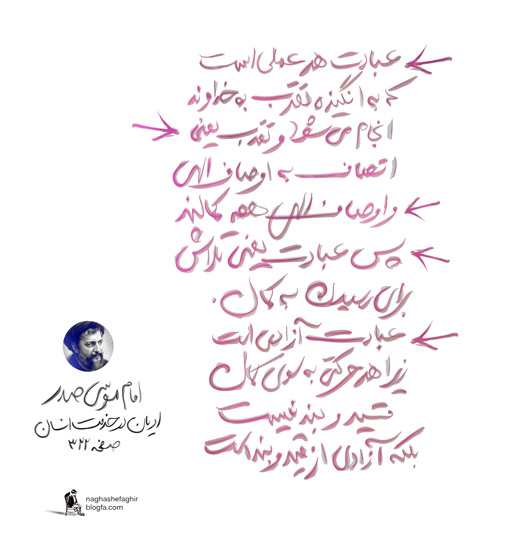 عبادت هر عملی است
که به انگیزه تقرب به خداوند
انجام می شود و تقرب یعنی
اتصاف به اوصاف الهی
و اوصاف الهی همه کمالند
پس عبادت یعنی تلاش
برای رسیدن به کمال.
عبادت آزادی است
زیرا هر حرکتی به سوی کمال
قید و بند نیست
بلکه آزادی از قید و بند است
امام موسی صدر
ادیان در خدمت انسان
صفحه ۳۲۲
naghashefaghir
blogfa.com